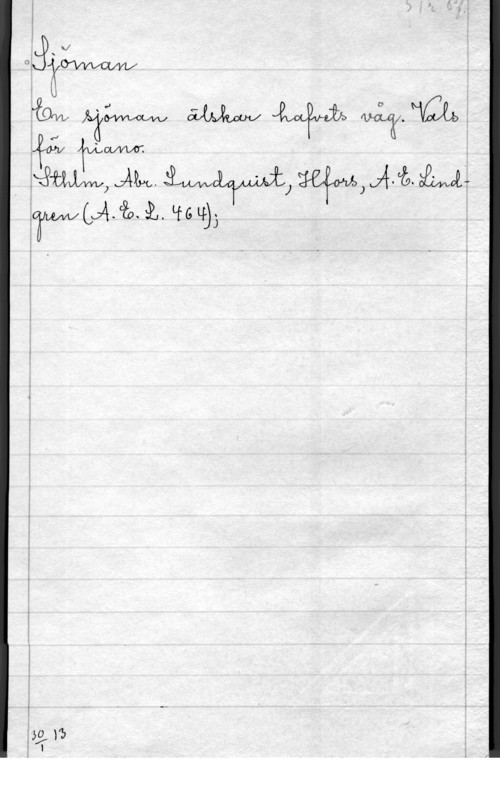 Sjöman
En sjöman älskar hafvets våg. Vals
för piano.
Sthlm, Abr. Lundquist, Hfors, A. E. Lind-
gren (A. E. L. 464);
30/1 13